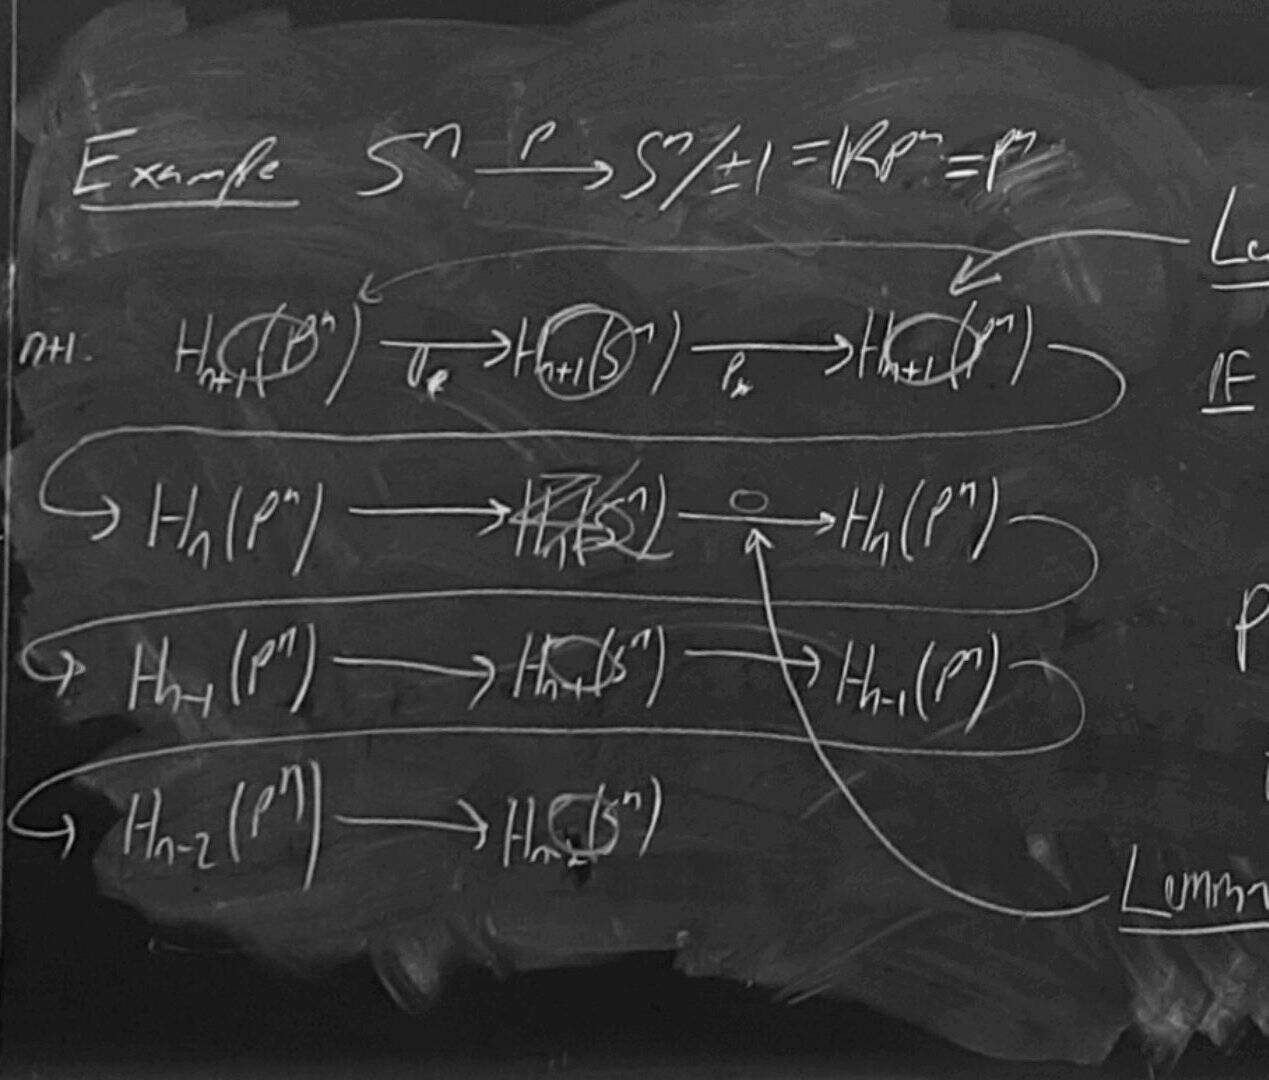 Example S^n —p→ S^n/±1 = RP^n = P^n
n+1. H_{n+1}(P^n) → H_{n+1}(S^n) —p_*→ H_{n+1}(P^n)
H_n(P^n) → H_n(S^n) —0→ H_n(P^n)
H_{n-1}(P^n) → H_{n-1}(S^n) → H_{n-1}(P^n)
H_{n-2}(P^n) → H_{n-2}(S^n)
Le
IF
P
Lemma